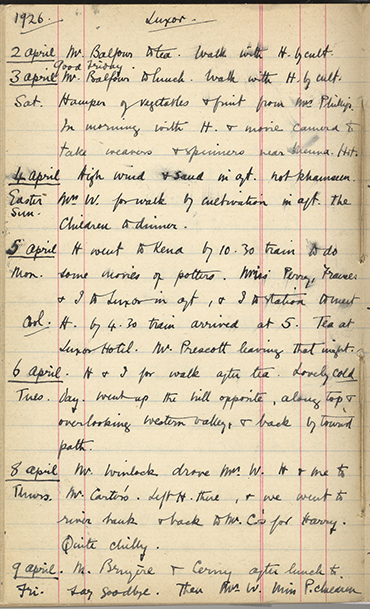 1926. Luxor.
2 april Mr. Balfour to tea. Walk with H. by cult.
Good Friday
3 april Mr. Balfour to lunch. Walk with H. by cult.
Sat. Hamper of vegetables & fruit from Mrs Phillips.
In morning with H. & movie camera to
take weavers & spinners near Kurna. Hot.
4 april High wind & sand in aft. not khamseen.
Easter Mrs W. for walk by cultivation in aft. the
Sun. Children to dinner.
5 april H went to Kena by 10.30 train to do
Mon. some movies of potters. Miss Perry, Frances
& I to Luxor in aft, & I to station to meet
Cool. H. by 4.30 train arrived at 5. Tea at
Luxor Hotel. Mr. Prescott leaving that night.
6 april. H & I for walk after tea. Lovely cold
Tues. day. went up the hill opposite, along top, &
overlooking western valley, & back by
path.
8 april Mr. Winlock drove Mrs. W. H & me to
Thurs. Mr. Carter's. Left H. there, & we went to
river bank & back to Mr. C's for Harry.
Quite chilly.
9 april. M. Bruyère & Cerny after lunch to
Fri. say goodbye. Then Mrs W. Miss P. children